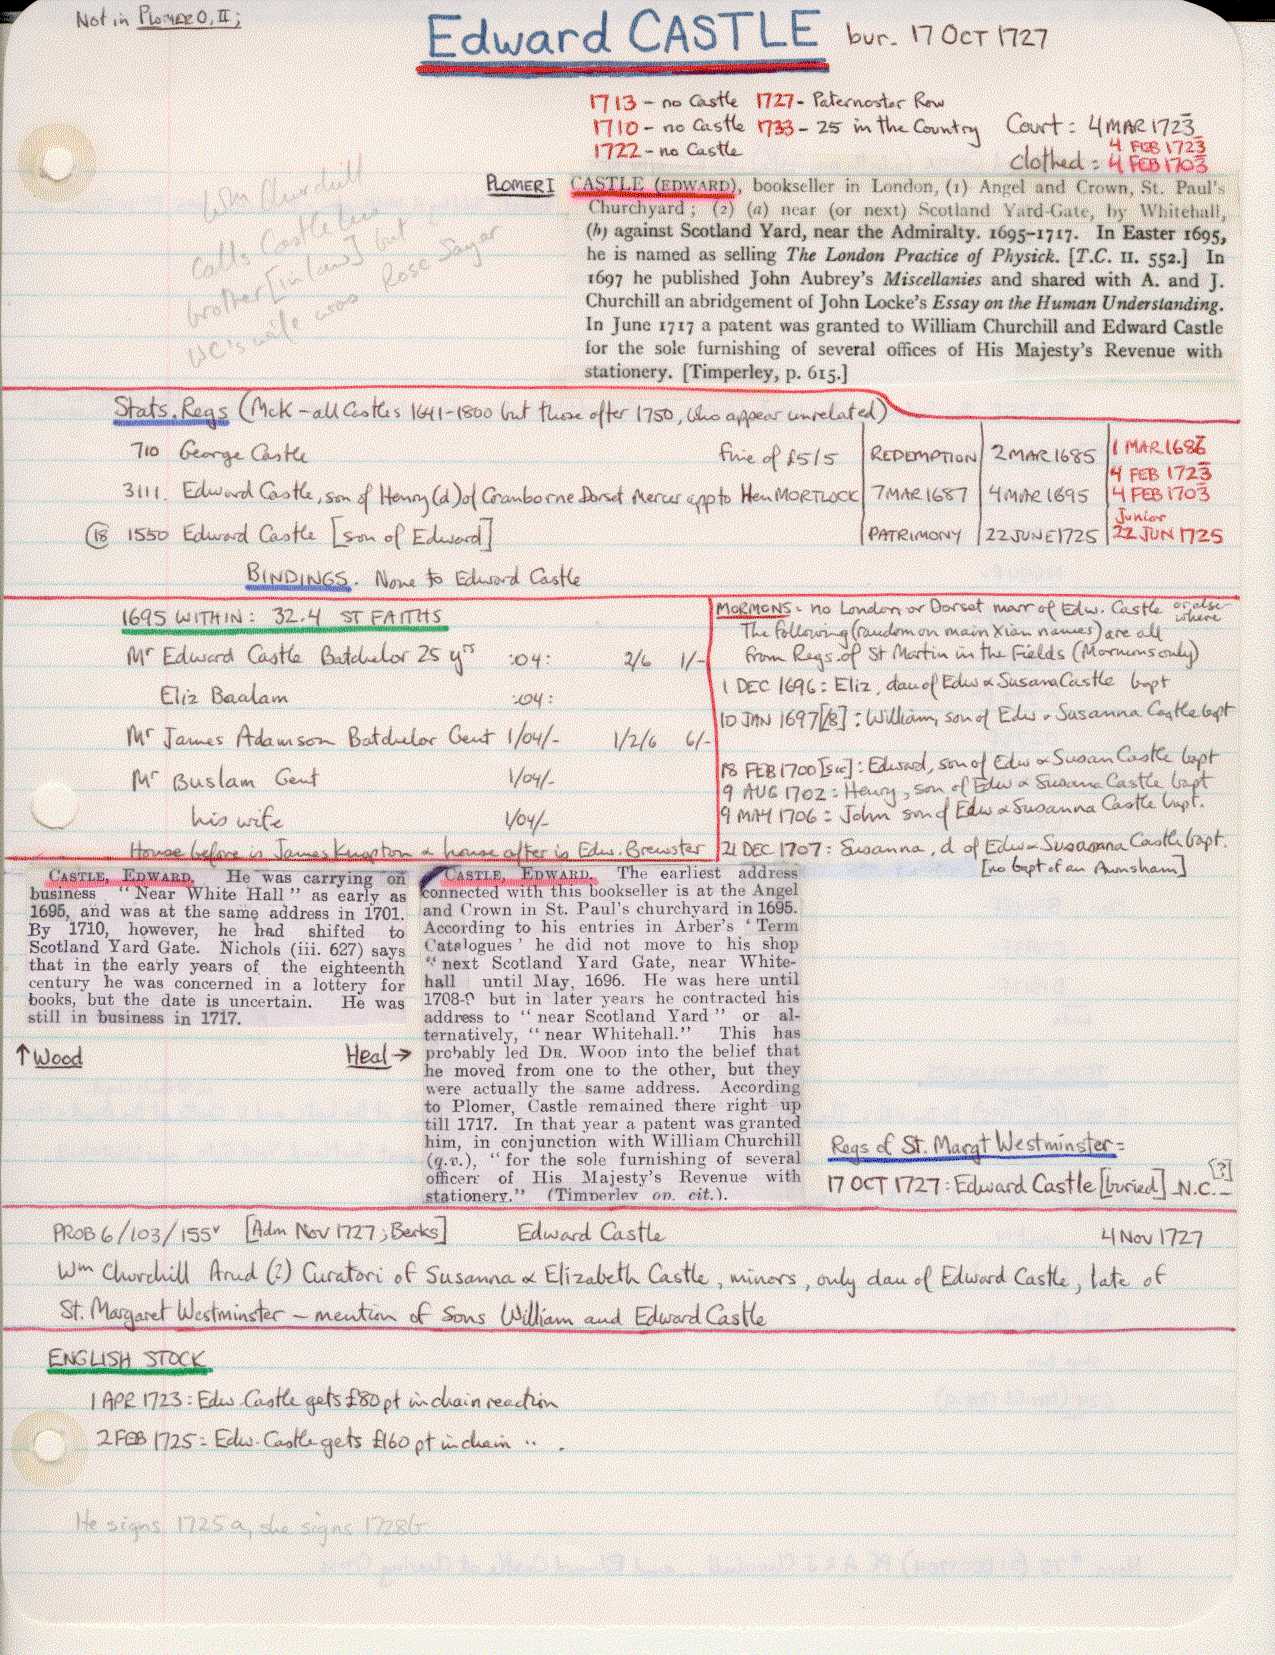 Not in PLOMER O, II;
Edward CASTLE bur. 17 OCT 1727
1713 - no Castle 1727 - Paternoster Row
1710 - no Castle 1733 - 25 in the Country
1722 - no Castle
Court: 4 MAR 1723
4 FEB 1723
Clothed = 4 FEB 1703
Wm Churchill
calls Castle
brother [in law] but
WC's wife was Rose Sayer
PLOMER I CASTLE (EDWARD), bookseller in London, (1) Angel and Crown, St. Paul's
Churchyard; (2) (a) near (or next) Scotland Yard-Gate, by Whitehall,
(b) against Scotland Yard, near the Admiralty. 1695-1717. In Easter 1695,
he is named as selling The London Practice of Physick. [T.C. II. 552.] In
1697 he published John Aubrey's Miscellanies and shared with A. and J.
Churchill an abridgement of John Locke's Essay on the Human Understanding.
In June 1717 a patent was granted to William Churchill and Edward Castle
for the sole furnishing of several offices of His Majesty's Revenue with
stationery. [Timperley, p. 615.]
Stats. Regs (McK - all Castles 1641-1800 but those after 1750, who appear unrelated)
710 George Castle fine of £5/5 REDEMPTION 2 MAR 1685 1 MAR 1686
4 FEB 1723
3111. Edward Castle, son of Henry (d) of Cranborne Dorset Mercer app to Hen MORTLOCK 7 MAR 1687 4 MAR 1695 4 FEB 1703
Junior
(18) 1550 Edward Castle [son of Edward] PATRIMONY 22 JUNE 1725 22 JUN 1725
BINDINGS. None to Edward Castle
1695 WITHIN: 32.4 ST FAITHS
Mr Edward Castle Batchelor 25 yrs :04: 2/6 1/-
Eliz Baalam :04:
Mr James Adamson Batchelor Gent 1/04/- 1/2/6 6/-
Mr Buslam Gent 1/04/-
his wife 1/04/-
House before is James Knapton & house after is Edw. Brewster
MORMONS - no London or Dorset marr of Edw. Castle or elsewhere
The following (random on main Xian names) are all
from Regs. of St Martin in the Fields (Mormons only)
1 DEC 1696: Eliz, dau of Edw & Susana Castle bapt
10 JAN 1697[/8]: William, son of Edw & Susanna Castle bapt
18 FEB 1700 [sic]: Edward, son of Edw & Susan Castle bapt
9 AUG 1702: Henry, son of Edw & Susana Castle bapt
9 MAY 1706: John son of Edw & Susanna Castle bapt.
21 DEC 1707: Susanna, d of Edw & Susanna Castle bapt.
[no bapt of an Awnsham]
CASTLE, EDWARD. He was carrying on
business "Near White Hall" as early as
1695, and was at the same address in 1701.
By 1710, however, he had shifted to
Scotland Yard Gate. Nichols (iii. 627) says
that in the early years of the eighteenth
century he was concerned in a lottery for
books, but the date is uncertain. He was
still in business in 1717.
↑ Wood
Heal →
CASTLE, EDWARD. The earliest address
connected with this bookseller is at the Angel
and Crown in St. Paul's churchyard in 1695.
According to his entries in Arber's 'Term
Catalogues' he did not move to his shop
"next Scotland Yard Gate, near White-
hall until May, 1696. He was here until
1708-9 but in later years he contracted his
address to "near Scotland Yard" or al-
ternatively, "near Whitehall." This has
probably led DR. WOOD into the belief that
he moved from one to the other, but they
were actually the same address. According
to Plomer, Castle remained there right up
till 1717. In that year a patent was granted
him, in conjunction with William Churchill
(q.v.), "for the sole furnishing of several
officers of His Majesty's Revenue with
stationery." (Timperley op. cit.).
Regs of St. Margt Westminster =
17 OCT 1727: Edward Castle [buried] N.C. [?]
PROB 6/103/155v [Adm Nov 1727; Berks] Edward Castle 4 Nov 1727
Wm Churchill Arud (?) Curatori of Susanna & Elizabeth Castle, minors, only dau of Edward Castle, late of
St. Margaret Westminster - mention of Sons William and Edward Castle
ENGLISH STOCK
1 APR 1723: Edw. Castle gets £80 pt in chain reaction
2 FEB 1725: Edw. Castle gets £160 pt in chain " .
He signs 1725a, she signs 1728b